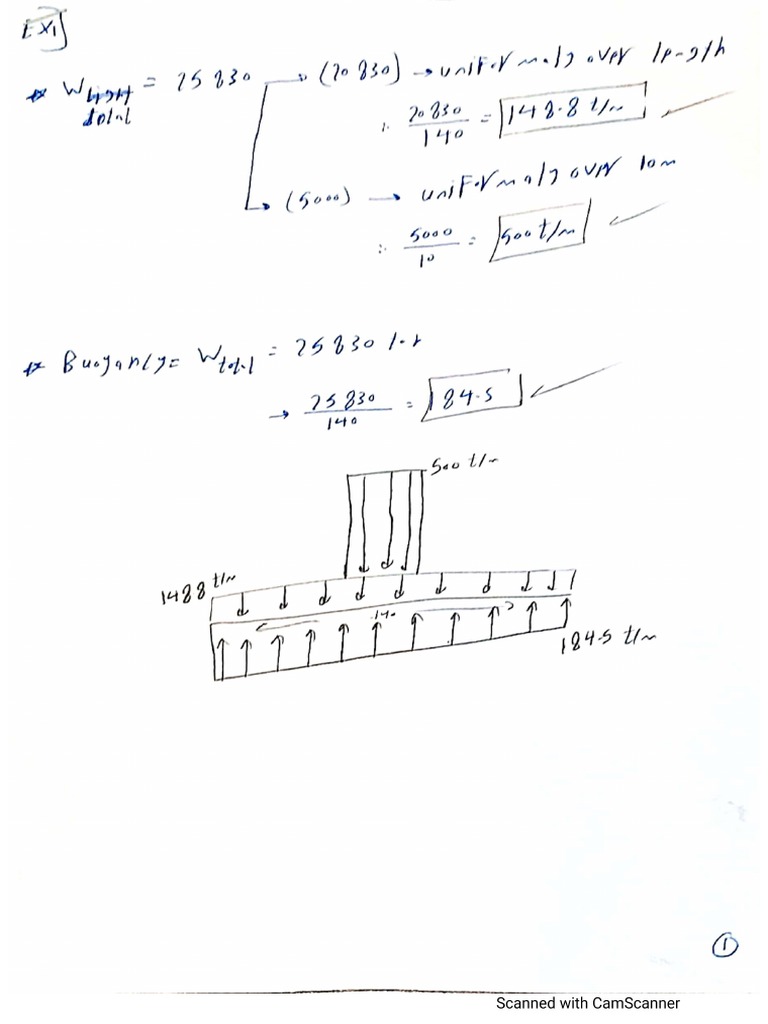 EX1]
* W total = 25830 → (20830) → uniformaly over length
∴ 20830/140 = 148.8 t/m
→ (5000) → uniformaly over 10m
∴ 5000/10 = 500 t/m
* Buoyancy = W total = 25830 tor
→ 25830/140 = 184.5
500 t/m
148.8 t/m
140
184.5 t/m
1
Scanned with CamScanner